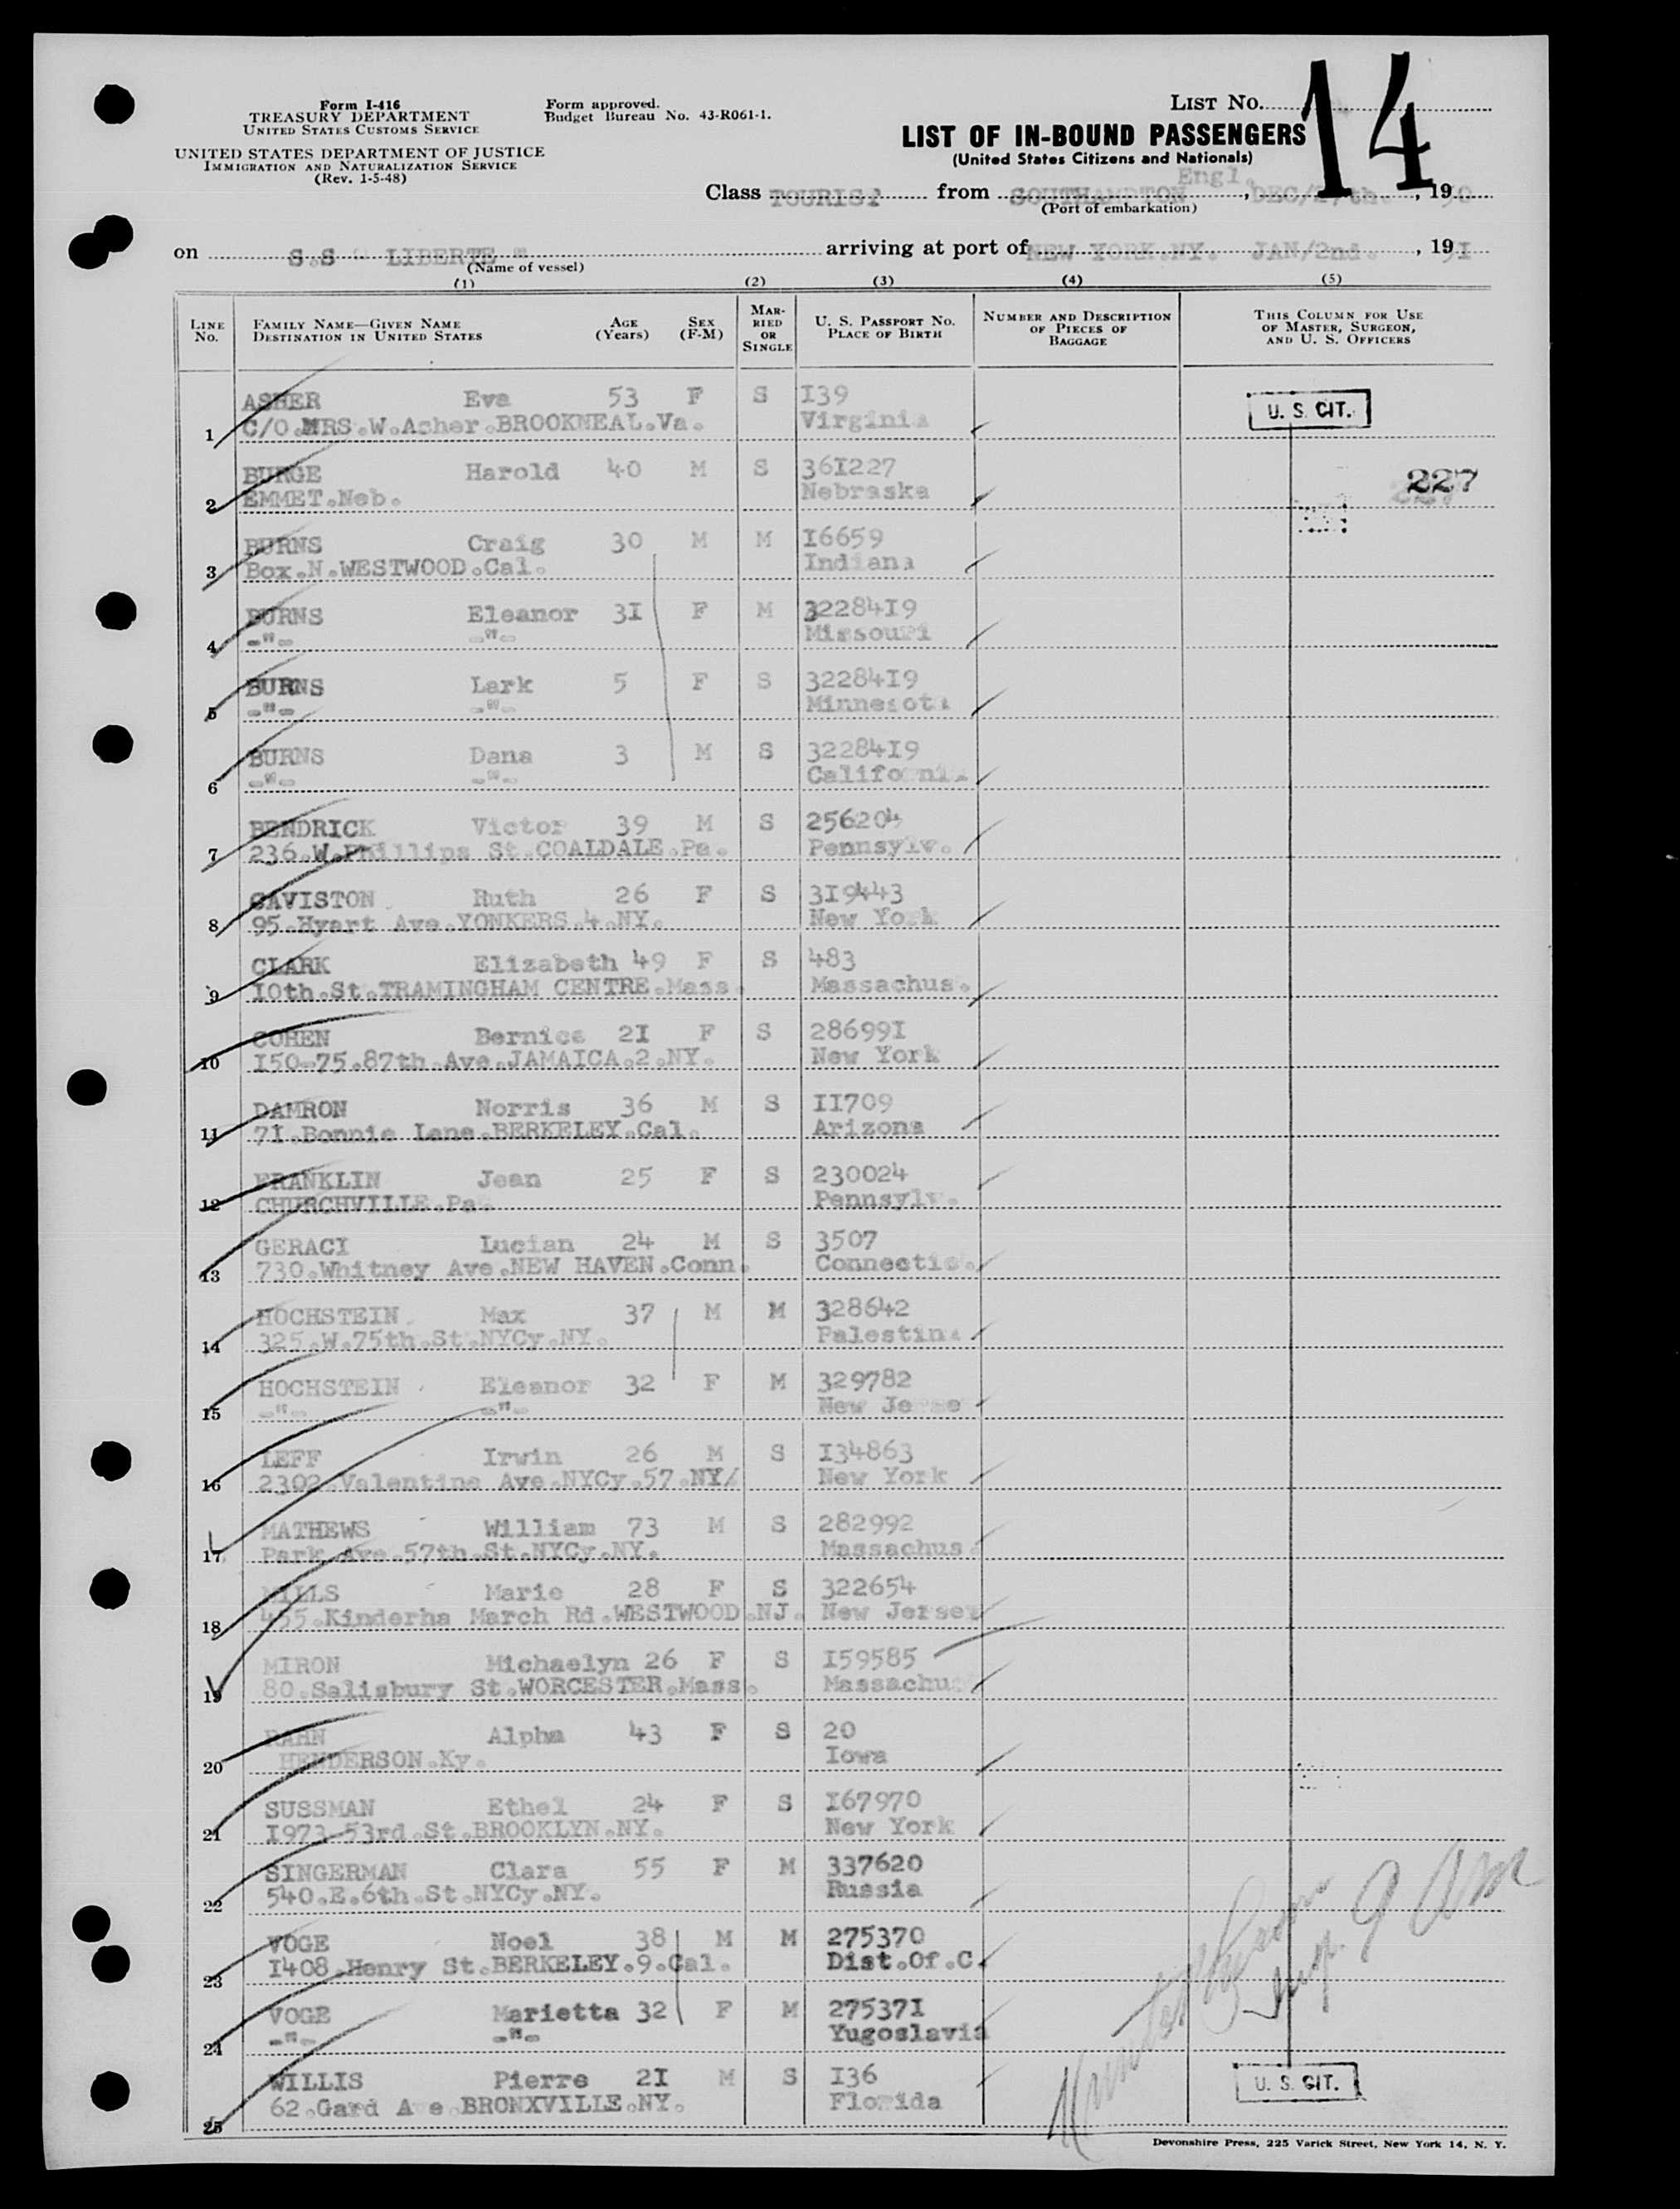 Form I-416
TREASURY DEPARTMENT
UNITED STATES CUSTOMS SERVICE
UNITED STATES DEPARTMENT OF JUSTICE
IMMIGRATION AND NATURALIZATION SERVICE
(Rev. 1-5-48)
Form approved.
Budget Bureau No. 43-R061-1.
LIST No. 14
LIST OF IN-BOUND PASSENGERS
(United States Citizens and Nationals)
Engl.
Class TOURIST from SOUTHAMPTON, DEC/27th., 1950
(Port of embarkation)
on S.S " LIBERTE " arriving at port of NEW YORK.NY. JAN/2nd., 195I
(Name of vessel)
(1) (2) (3) (4) (5)
LINE No. FAMILY NAME—GIVEN NAME DESTINATION IN UNITED STATES AGE (Years) SEX (F-M) MARRIED OR SINGLE U. S. PASSPORT No. PLACE OF BIRTH NUMBER AND DESCRIPTION OF PIECES OF BAGGAGE THIS COLUMN FOR USE OF MASTER, SURGEON, AND U. S. OFFICERS
ASHER Eva 53 F S I39 U. S. CIT.
1 C/O.MRS.W.Asher.BROOKNEAL.Va. Virginia
BURGE Harold 40 M S 36I227 227
2 EMMET.Neb. Nebraska
BURNS Craig 30 M M I6659
3 Box.N.WESTWOOD.Cal. Indiana
BURNS Eleanor 3I F M 32284I9
4 -"- -"- Missouri
BURNS Lark 5 F S 32284I9
5 -"- -"- Minnesota
BURNS Dana 3 M S 32284I9
6 -"- -"- California
BENDRICK Victor 39 M S 256204
7 236.W.Phillips St.COALDALE.Pa. Pennsylv.
CAVISTON Ruth 26 F S 3I9443
8 95.Hyart Ave.YONKERS.4.NY. New York
CLARK Elizabeth 49 F S 483
9 I0th.St.TRAMINGHAM CENTRE.Mass. Massachus.
COHEN Bernice 2I F S 28699I
10 I50-75.87th.Ave.JAMAICA.2.NY. New York
DAMRON Norris 36 M S II709
11 7I.Bonnie Lane.BERKELEY.Cal. Arizona
FRANKLIN Jean 25 F S 230024
12 CHURCHVILLE.Pa. Pennsylv.
GERACI Lucian 24 M S 3507
13 730.Whitney Ave.NEW HAVEN.Conn. Connectic.
HOCHSTEIN Max 37 M M 328642
14 325.W.75th.St.NYCy.NY. Palestina
HOCHSTEIN Eleanor 32 F M 329782
15 -"- -"- New Jerse
LEFF Irwin 26 M S I34863
16 2302.Valentine Ave.NYCy.57.NY/ New York
MATHEWS William 73 M S 282992
17 Park Ave.57th.St.NYCy.NY. Massachus.
MILLS Marie 28 F S 322654
18 455.Kinderha March Rd.WESTWOOD.NJ. New Jersey
MIRON Michaelyn 26 F S I59585
19 80.Salisbury St.WORCESTER.Mass. Massachu
RAHN Alpha 43 F S 20
20 HENDERSON.Ky. Iowa
SUSSMAN Ethel 24 F S I67970
21 I973-53rd.St.BROOKLYN.NY. New York
SINGERMAN Clara 55 F M 337620
22 540.E.6th.St.NYCy.NY. Russia
VOGE Noel 38 M M 275370
23 I408.Henry St.BERKELEY.9.Cal. Dist.Of.C.
VOGE Marietta 32 F M 27537I
24 -"- -"- Yugoslavia
WILLIS Pierre 2I M S I36 U. S. CIT.
25 62.Gard Ave.BRONXVILLE.NY. Florida
9 AM
Devonshire Press, 225 Varick Street, New York 14, N. Y.